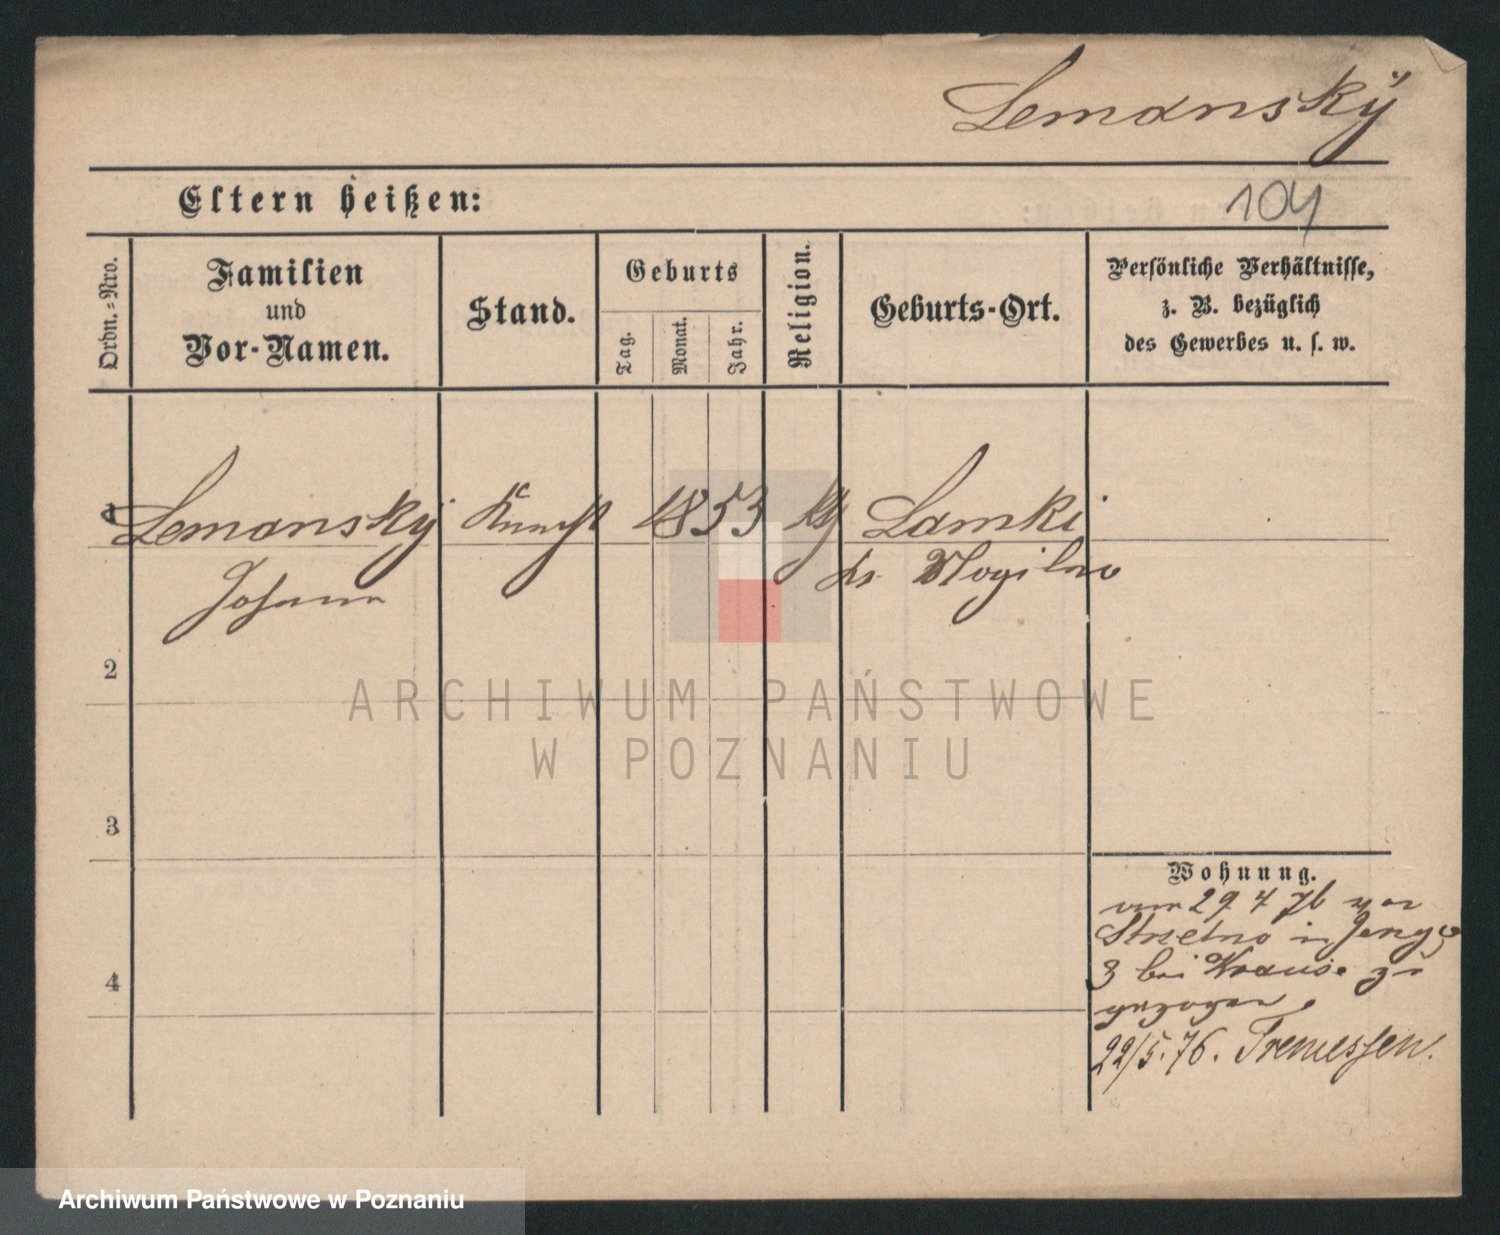 Lemanskÿ
Eltern heißen:
104
Ordn.-Nro.
Familien
und
Vor-Namen.
Stand.
Geburts
Tag.
Monat.
Jahr.
Religion.
Geburts-Ort.
Persönliche Verhältnisse,
z. B. bezüglich
des Gewerbes u. s. w.
1 Lemanskÿ 1853 Lamki
Johann Mogilno
2
ARCHIWUM PAŃSTWOWE
W POZNANIU
3
4
Wohnung.
29 4 76
Strzelno in
3 bei Krause zu
gezogen.
22/5. 76. Tremessen.
Archiwum Państwowe w Poznaniu